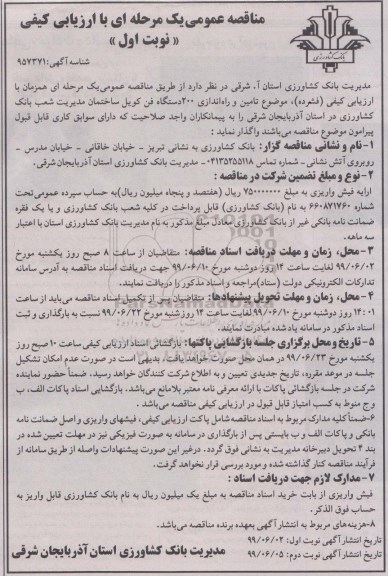 مناقصه عمومی یک مرحله ای با ارزیابی کیفی
« نوبت اول »
بانک کشاورزی
شناسه آگهی: ۹۵۷۳۷۱
مدیریت بانک کشاورزی استان آ. شرقی در نظر دارد از طریق مناقصه عمومی یک مرحله ای همزمان با
ارزیابی کیفی (فشرده)، موضوع تامین و راه‌اندازی ۲۰۰دستگاه فن کویل ساختمان مدیریت شعب بانک
کشاورزی در استان آذربایجان شرقی را به پیمانکاران واجد صلاحیت که دارای سوابق کاری قابل قبول
پیرامون موضوع مناقصه می‌باشند واگذار نماید :
۱- نام و نشانی مناقصه گزار: بانک کشاورزی به نشانی تبریز - خیابان خاقانی - خیابان مدرس -
روبروی آتش نشانی - شماره تماس ۰۴۱۳۵۲۵۵۱۱۸- مدیریت بانک کشاورزی استان آذربایجان شرقی.
۲- نوع و مبلغ تضمین شرکت در مناقصه :
ارایه فیش واریزی به مبلغ ۷۵۰۰۰۰۰۰۰ ریال (هفتصد و پنجاه میلیون ریال)به حساب سپرده عمومی تحت
شماره ۶۶۰۸۷۱۷۶۰ به نام (بانک کشاورزی) قابل پرداخت در کلیه شعب بانک کشاورزی و یا یک فقره
ضمانت نامه بانکی غیر از بانک کشاورزی معادل مبلغ مذکور به نام مدیریت بانک کشاورزی استان با اعتبار
سه ماهه.
۳- محل، زمان و مهلت دریافت اسناد مناقصه: متقاضیان از ساعت ۸ صبح روز یکشنبه مورخ
۹۹/۰۶/۰۲ لغایت ساعت ۱۴ روز دوشنبه مورخ ۹۹/۰۶/۱۰ جهت دریافت اسناد مناقصه به آدرس سامانه
تدارکات الکترونیکی دولت (ستاد)مراجعه و اسناد مذکور را دریافت نمایند.
۴- محل، زمان و مهلت تحویل پیشنهادها: متقاضیان پس از تکمیل اسناد مناقصه می‌باید از ساعت
۱۴:۰۱ روز دوشنبه مورخ ۹۹/۰۶/۱۰لغایت ساعت ۱۴ روزشنبه مورخ ۹۹/۰۶/۲۲ نسبت به بارگذاری و ثبت
اسناد مذکور در سامانه یادشده مبادرت نمایند.
۵- تاریخ و محل برگزاری جلسه بازگشایی پاکتها: بازگشائی اسناد ارزیابی کیفی ساعت ۱۰ صبح روز
یکشنبه مورخ ۹۹/۰۶/۲۳ در همان محل صورت خواهد یافت. بدیهی است در صورت عدم امکان تشکیل
جلسه در موعد مقرره، تاریخ جدیدی تعیین و به اطلاع شرکت کنندگان خواهد رسید. ضمناً حضور نماینده
شرکت در جلسه بازگشائی پاکات با ارائه معرفی نامه معتبر بلامانع می‌باشد. بازگشایی اسناد پاکات الف، ب
و ج منوط به کسب امتیاز قابل قبول در ارزیابی کیفی مناقصه می‌باشد .
۶- ضمناً کلیه مدارک مربوط به اسناد مناقصه شامل پاکت ارزیابی کیفی، فیشهای واریزی و اصل ضمانت نامه
بانکی و پاکات الف و ب بایستی پس از بارگذاری در سامانه به صورت فیزیکی نیز در مهلت تعیین شده در
بند ۴ تحویل دبیرخانه مدیریت به نشانی فوق گردد. درغیر این صورت پیشنهادات واصله از طریق سامانه از
فرآیند مناقصه کنار گذاشته شده و مورد بررسی قرار نخواهد گرفت.
۷- مدارک لازم جهت دریافت اسناد :
فیش واریزی از بابت خرید اسناد مناقصه به مبلغ یک میلیون ریال به نام بانک کشاورزی قابل واریز به
حساب فوق الذکر.
۸-هزینه‌های مربوط به انتشار آگهی بعهده برنده مناقصه می‌باشد.
تاریخ انتشار آگهی نوبت اول: ۹۹/۰۶/۰۲
تاریخ انتشار آگهی نوبت دوم: ۹۹/۰۶/۰۵
مدیریت بانک کشاورزی استان آذربایجان شرقی